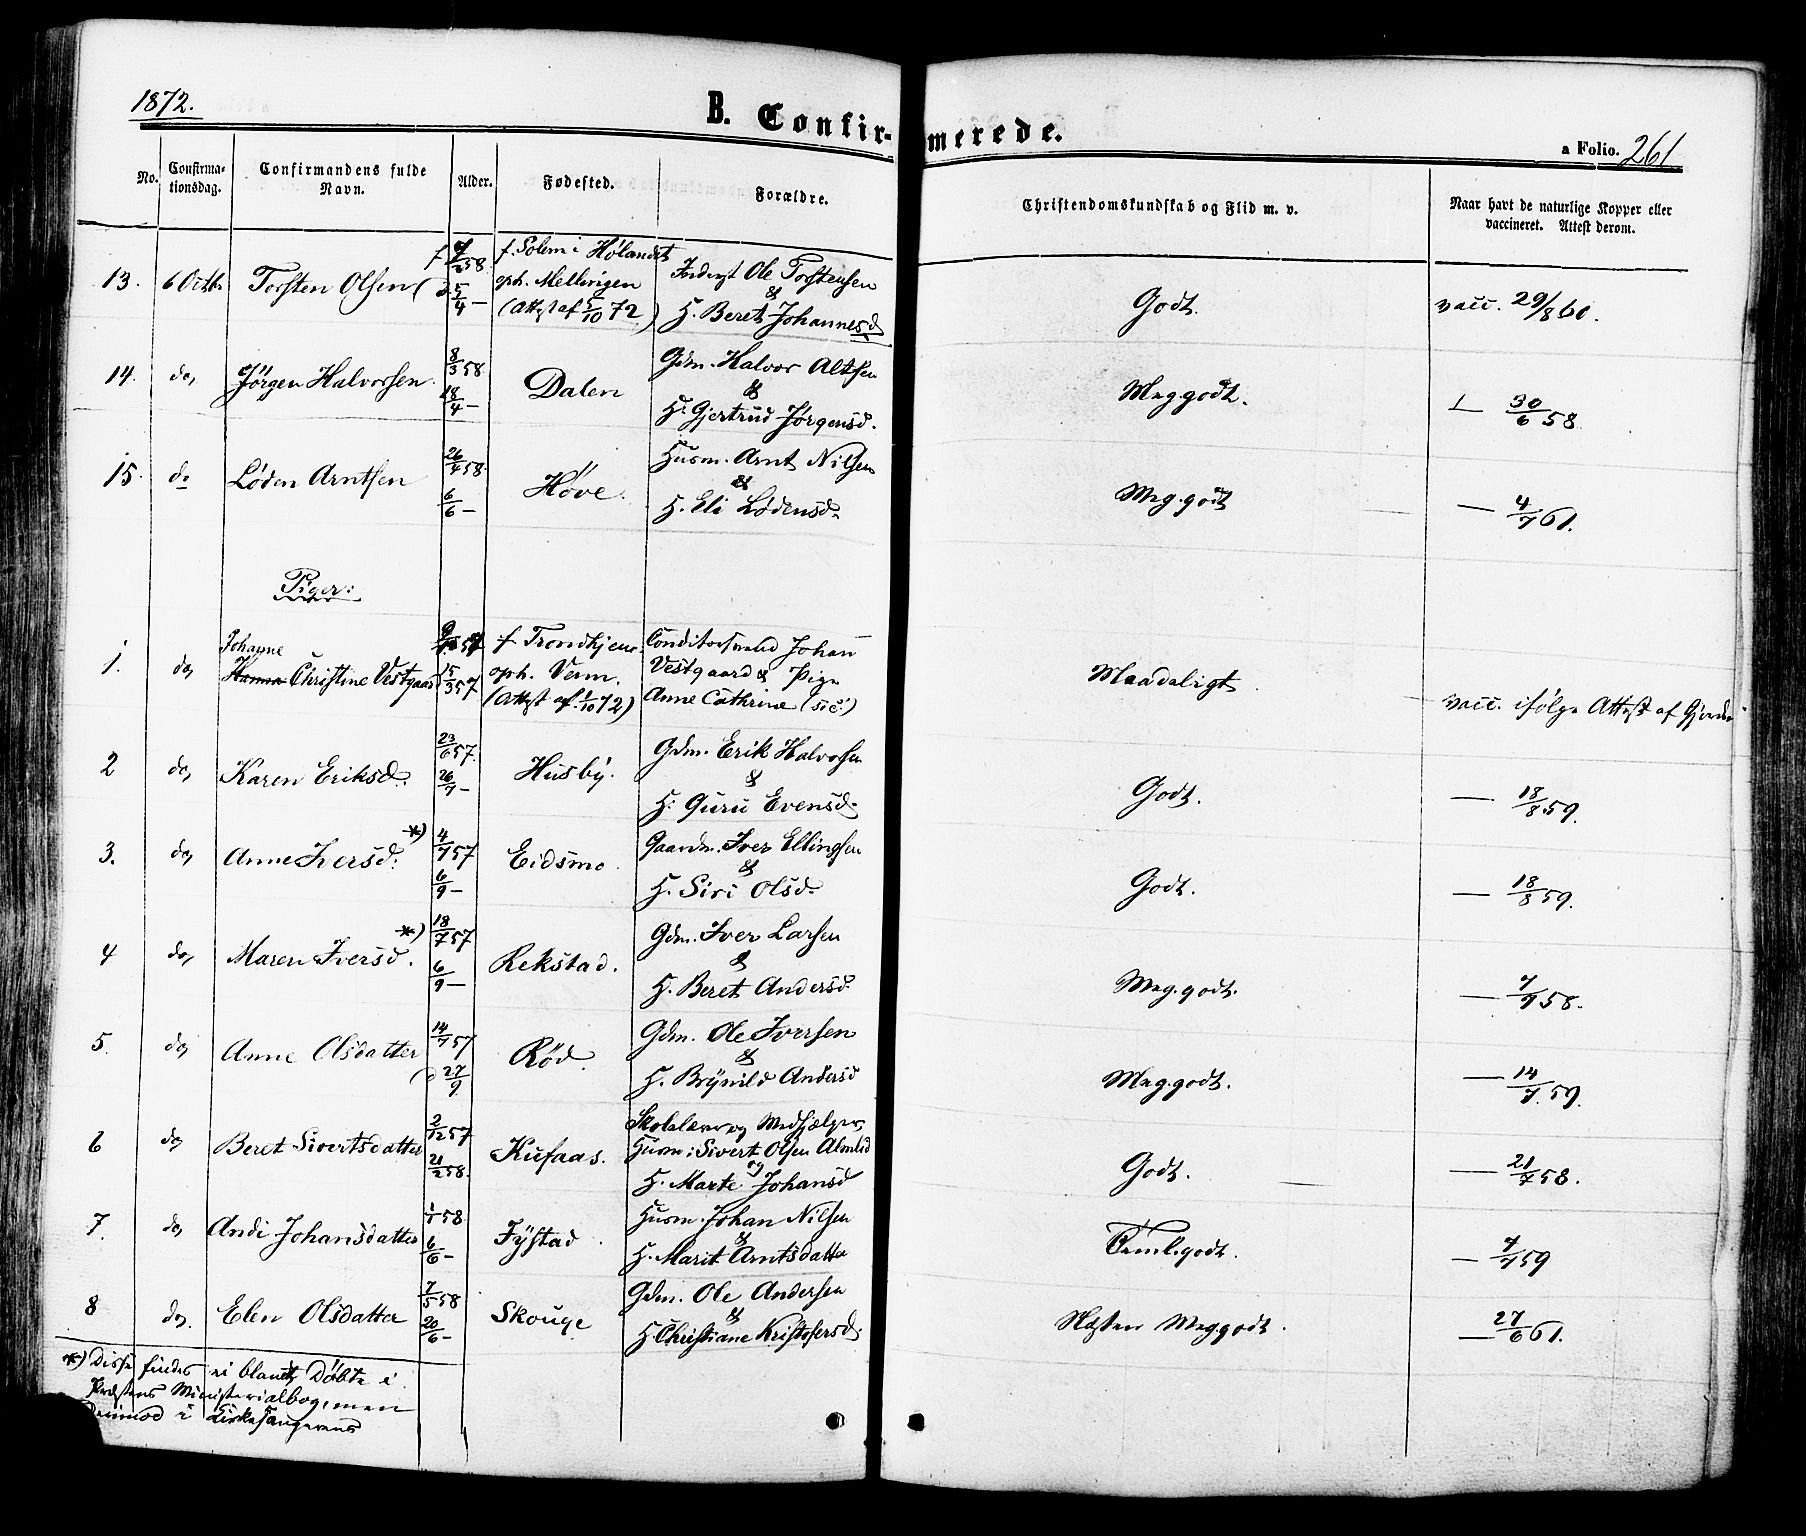 1872.
B. Confirmerede.
a Folio. 261
No. Confirmationsdag. Confirmandens fulde Navn. Alder. Fødested. Forældre. Christendomskundskab og Flid m. v. Naar havt de naturlige Kopper eller vaccineret. Attest derom.
13. 6 Octbr Torsten Olsen f. Solem i Hølandet
oph. Mellingen
(Attest af 5/10 72)
Ole Torstensen
&
H. Beret Johannesd
Godt. vacc. 29/8 60.
14. do, Jörgen Halvorsen. 8/3 58. 18/4 — Dalen
Gdm. Halvor Altsen
&
H. Gjertrud Jörgensd.
Meg godt. 30/6 58
15. do Löden Arntsen 26/4 58. 6/6 — Höve.
Husm. Arnt Nilsen
&
H. Eli Lödensd.
Meg. godt — 4/7 61.
Piger:
1. do, Johanne
Hanna Christine Vestgaard 15/3 57
f Trondhjem
oph. Verm.
(Attest af 1/10 72)
Johan
Vestgaard & Pige
Anne Cathrine (sic!)
Maadeligt vacc. ifølge Attest af
2 do, Karen Eriksd. 23/6 57. 26/7 — Husby.
Gdm. Erik Halvorsen
&
H. Guru Evensd.
Godt. — 18/8 59.
3. do, Anne Iversd. *) 4/7 57 6/9 — Eidsmo.
Gaardm. Iver Ellingsen
&
H. Siri Olsd.
Godt. — 18/8 59.
4 do, Maren Iversd. *) 18/7 57 6/9 — Rekstad.
Gdm. Iver Larsen
&
H. Beret Andersd.
Meg. godt. — 7/9 58.
5. do, Anne Olsdatter 14/7 57 27/9. Röd.
Gdm. Ole Iversen
&
H. Brynild Andersd
Meg. godt. — 14/7 59.
6 do, Beret Sivertsdatter 2/12 57 21/2 58. Kufaas.
Skolelærer og Medhjælper,
Husm: Sivert Olsen Almlid
og
H. Marte Johansd
Godt. — 21/7 58.
7. do, Andi Johansdatter 1/1 58 6/6 — Fystad.
Husm. Johan Nilsen
&
H. Marit Arntsdatter
Teml. godt. — 7/7 59
8 do, Elen Olsdatter 7/5 58 20/6 — Skouge
Gdm. Ole Andersen
&
H. Christiane Kristofersd.
Næsten Meg godt. — 27/6 61.
*) Disse findes ei blandt Döbte i
Præstens Ministerialbog, men
derimod i Kirkesangerens